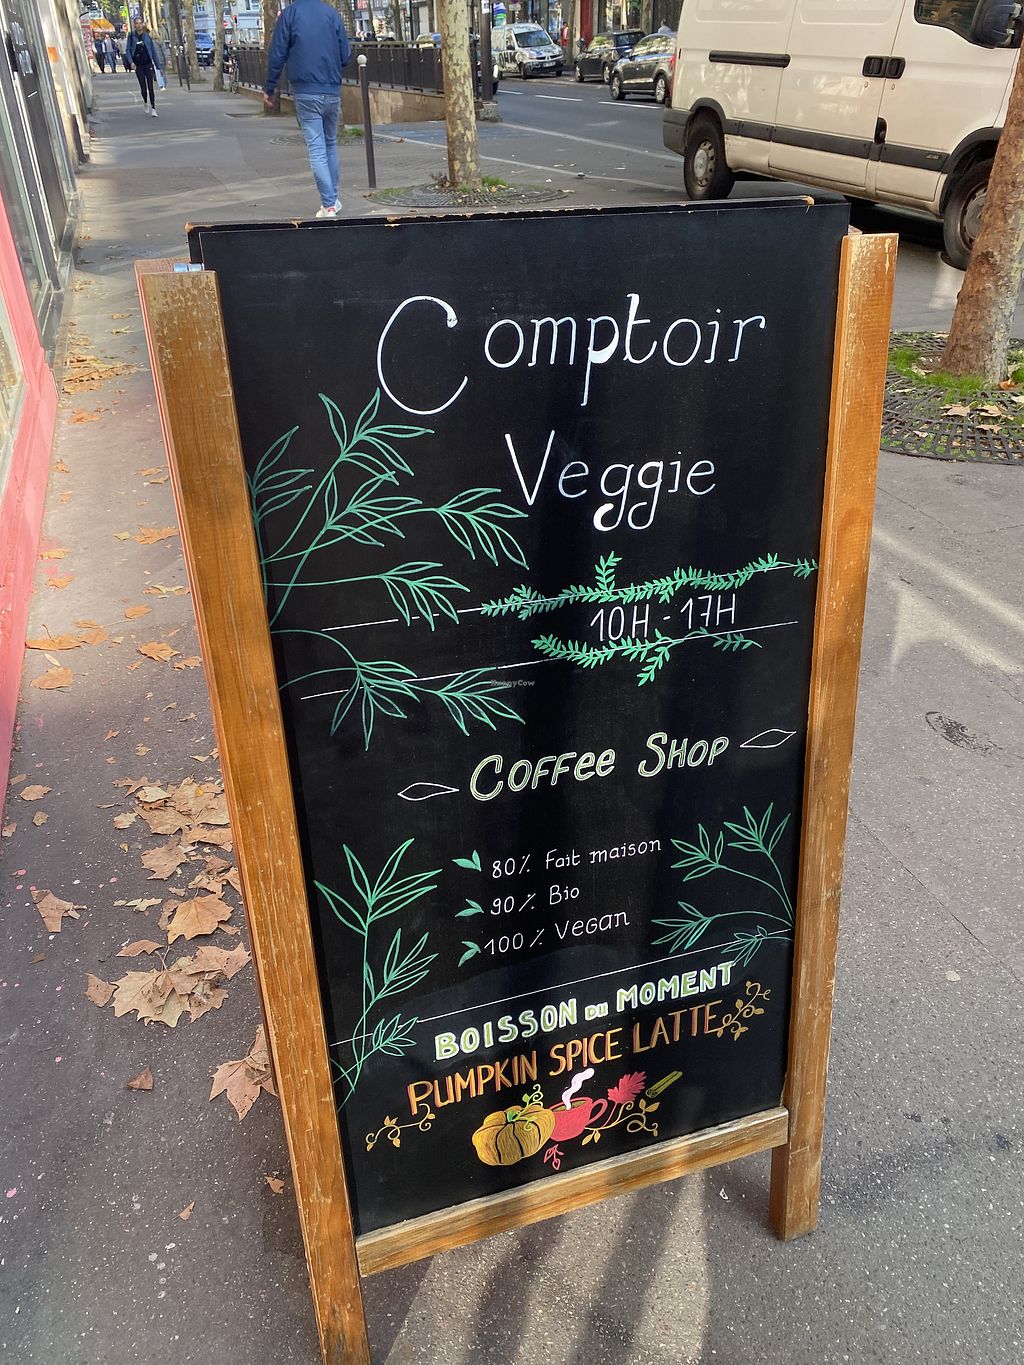 Comptoir
Veggie
10H - 17H
HappyCow
Coffee Shop
80% Fait maison
90% Bio
100% Vegan
BOISSON DU MOMENT
PUMPKIN SPICE LATTE